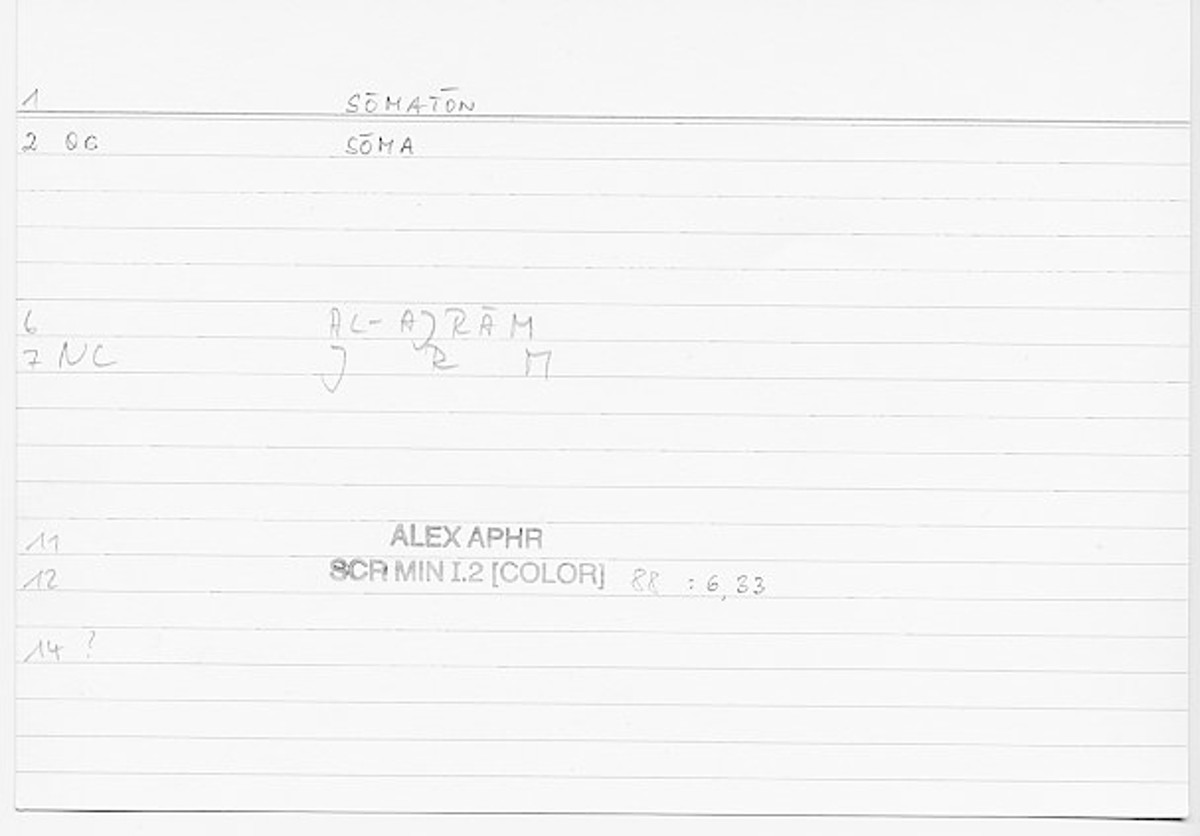 1 SŌMATŌN
2 OC SŌMA
6 AL-AJRĀM
7 NC J R M
11 ALEX APHR
12 SCR MIN I.2 [COLOR] 88 : 6,33
14 ?